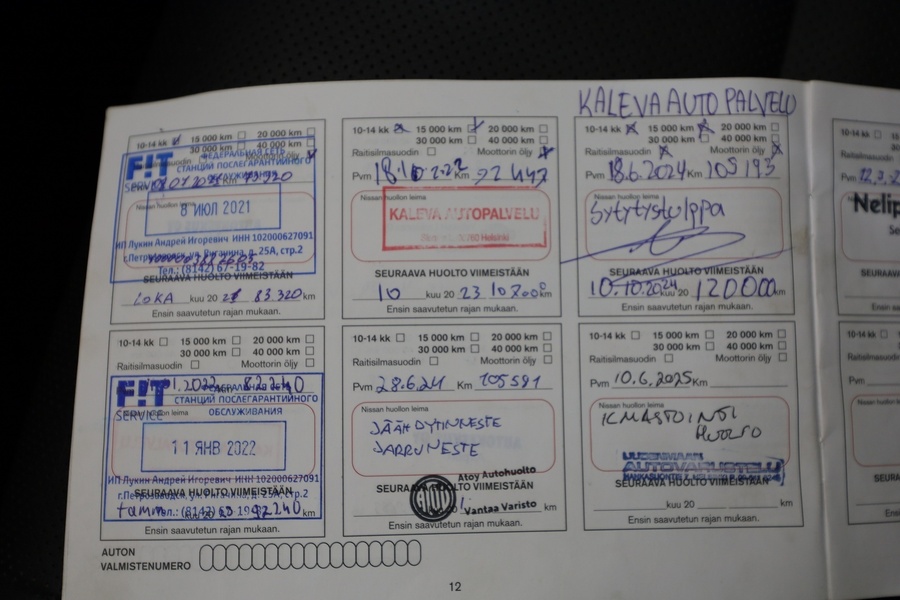 KALEVA AUTO PALVELU
10-14 kk 15 000 km 20 000 km
30 000 km 40 000 km
Raitisilmasuodin Moottorin öljy
F!T
SERVICE
ФЕДЕРАЛЬНАЯ СЕТЬ
СТАНЦИЙ ПОСЛЕГАРАНТИЙНОГО
ОБСЛУЖИВАНИЯ
Nissan huollon leima
8 ИЮЛ 2021
ИП Лукин Андрей Игоревич ИНН 102000627091
25А, стр.2
Тел.: (8142) 67-19-82
SEURAAVA HUOLTO VIIMEISTÄÄN
LOKA kuu 20 21 83 320 km
Ensin saavutetun rajan mukaan.
10-14 kk 15 000 km 20 000 km
30 000 km 40 000 km
Raitisilmasuodin Moottorin öljy
Pvm Km 92 447
Nissan huollon leima
KALEVA AUTOPALVELU
Helsinki
SEURAAVA HUOLTO VIIMEISTÄÄN
10 kuu 20 23 107000 km
Ensin saavutetun rajan mukaan.
10-14 kk 15 000 km 20 000 km
30 000 km 40 000 km
Raitisilmasuodin Moottorin öljy
Pvm 18.6.2024 Km 105 193
Nissan huollon leima
Sytytystulppa
SEURAAVA HUOLTO VIIMEISTÄÄN
10.10.2024 kuu 20 120000 km
Ensin saavutetun rajan mukaan.
10-14 kk
Raitisilmasuodin
Pvm
Nissan huollon leima
Nelip
10-14 kk 15 000 km 20 000 km
30 000 km 40 000 km
Raitisilmasuodin Moottorin öljy
F!T
SERVICE
СТАНЦИЙ ПОСЛЕГАРАНТИЙНОГО
ОБСЛУЖИВАНИЯ
11 ЯНВ 2022
ИП Лукин Андрей Игоревич ИНН 102000627091
SEURAAVA HUOLTO VIIMEISTÄÄN
km
Ensin saavutetun rajan mukaan.
10-14 kk 15 000 km 20 000 km
30 000 km 40 000 km
Raitisilmasuodin Moottorin öljy
Pvm 28.6.24 Km 105591
Nissan huollon leima
JÄÄHDYTINNESTE
JARRUNESTE
Atoy Autohuolto
SEURAAVA HUOLTO VIIMEISTÄÄN
ATOY
Vantaa Varisto
Ensin saavutetun rajan mukaan.
10-14 kk 15 000 km 20 000 km
30 000 km 40 000 km
Raitisilmasuodin Moottorin öljy
Pvm 10.6.2025 Km
Nissan huollon leima
ILMASTOINTI
HUOLTO
UUDENMAAN
AUTOVARUSTELU
SEURAAVA HUOLTO VIIMEISTÄÄN
kuu 20 km
Ensin saavutetun rajan mukaan.
10-14 kk
Pvm
AUTON
VALMISTENUMERO
12